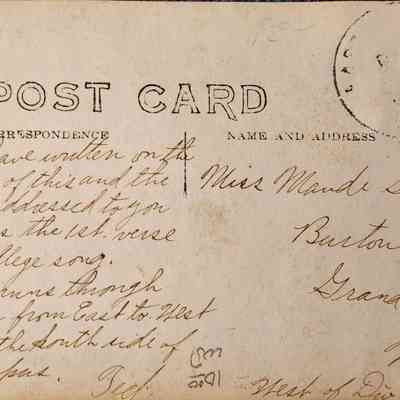 POST CARD
RRESPONDENCE
NAME AND ADDRESS
ave written on the
of this and the
ddressed to you
s the 1st. verse
llege song.
uns through
from East to West
the south side of
pus.
Miss Maude
Burton
Grand
West of Div